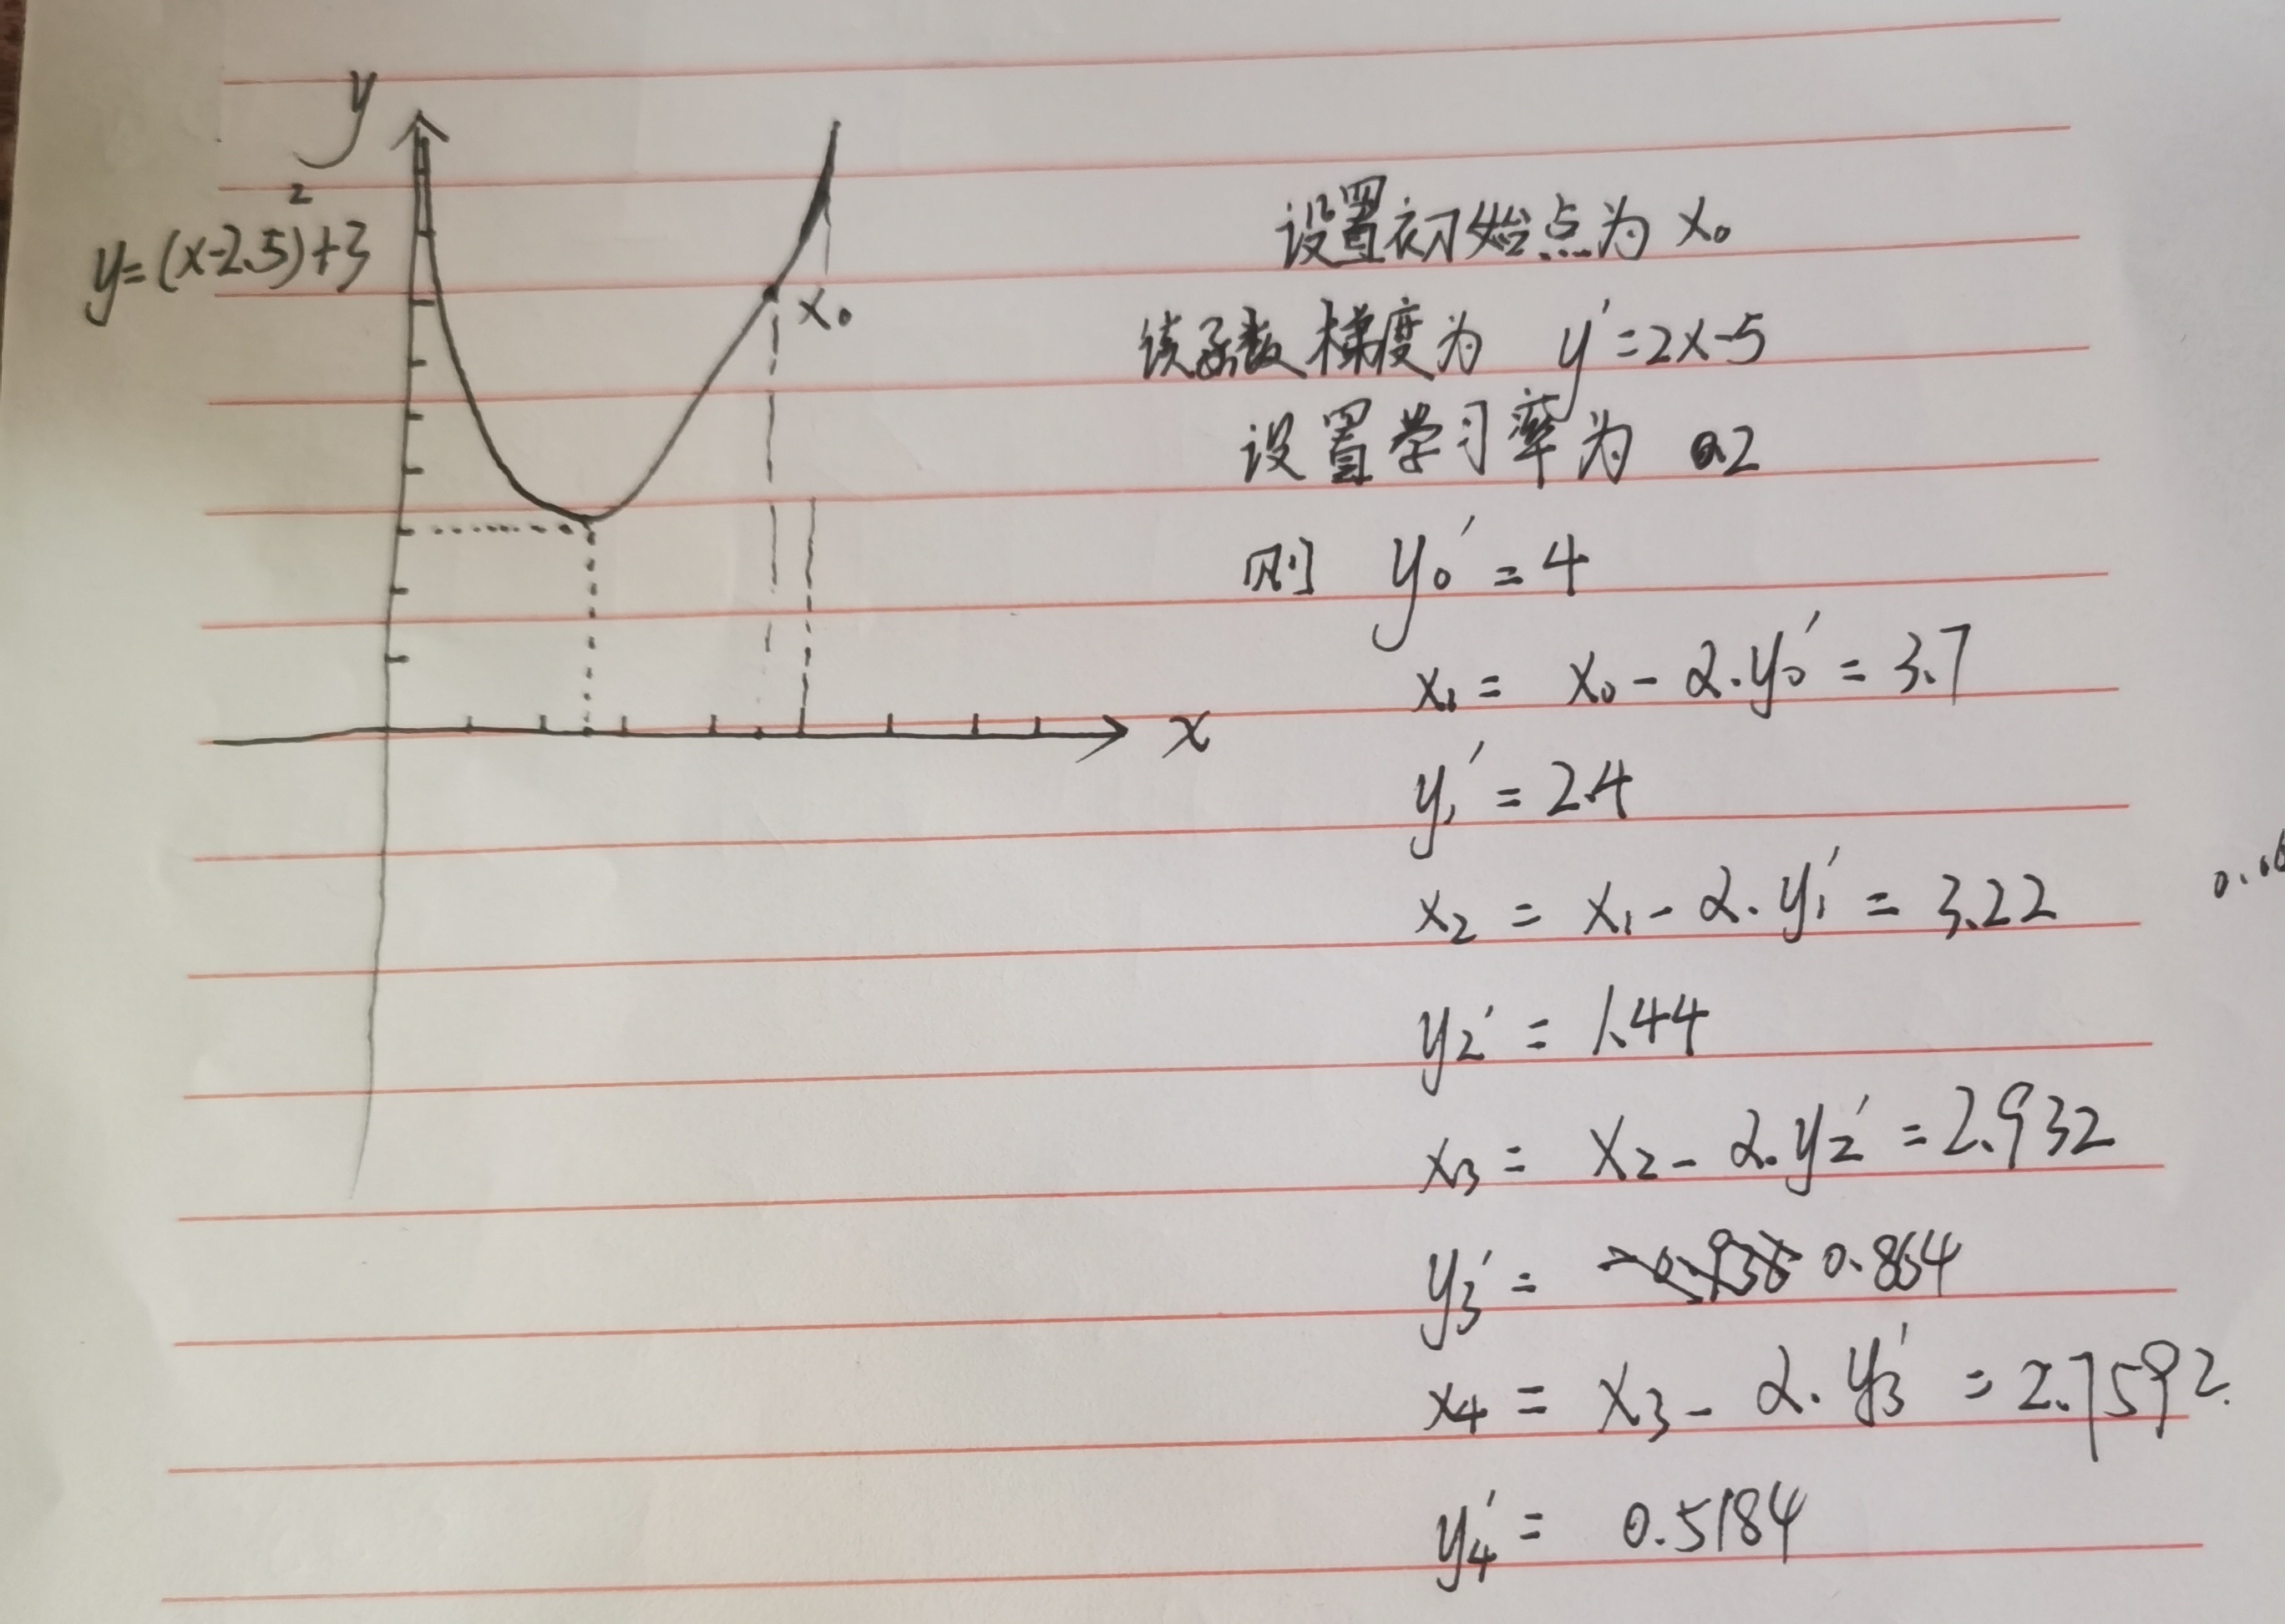 y
y=(x-2.5)²+3
x₀
x
设置初始点为 x₀
该函数梯度为 y'=2x-5
设置学习率为 0.2
则 y₀' = 4
x₁ = x₀ - α·y₀' = 3.7
y₁' = 2.4
x₂ = x₁ - α·y₁' = 3.22
y₂' = 1.44
x₃ = x₂ - α·y₂' = 2.932
y₃' = 0.864
x₄ = x₃ - α·y₃' = 2.7592
y₄' = 0.5184